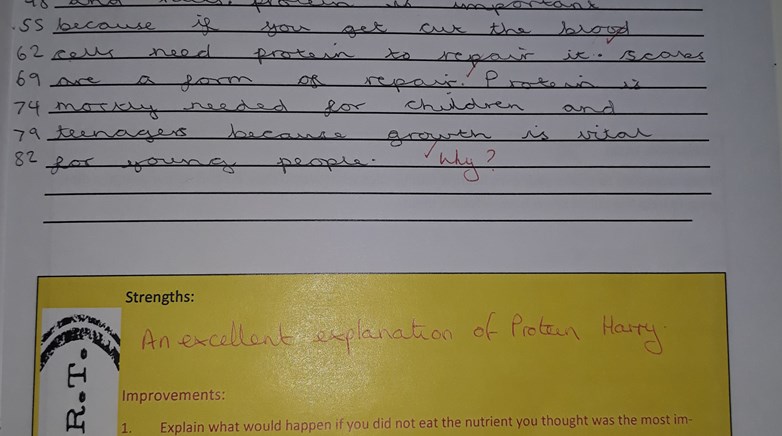 48 and nails. Protein is important
55 because if you get cut the blood
62 cells need protein to repair it. Scares
69 are a form of repair. Protein is
74 mostly needed for children and
79 teenagers because growth is vital
82 for young people. Why?
Strengths:
An excellent explanation of Protein Harry.
R.T.
Improvements:
1. Explain what would happen if you did not eat the nutrient you thought was the most im-